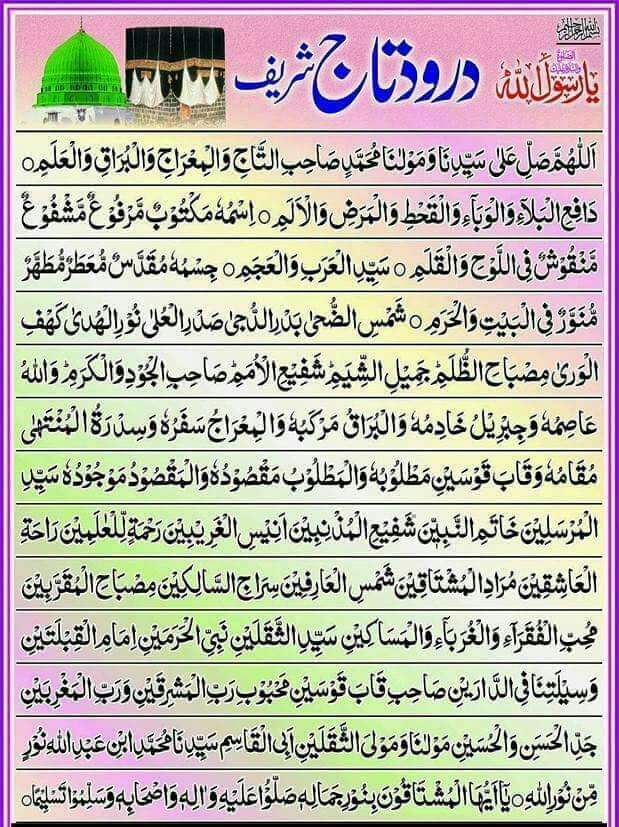 بسم الله الرحمن الرحيم
الصلوة والسلام عليك
یا رسول اللہ
درود تاج شریف
اَللّٰهُمَّ صَلِّ عَلٰى سَيِّدِنَا وَمَوْلٰنَا مُحَمَّدٍ صَاحِبِ التَّاجِ وَالْمِعْرَاجِ وَالْبُرَاقِ وَالْعَلَمِ ○
دَافِعِ الْبَلَآءِ وَالْوَبَآءِ وَالْقَحْطِ وَالْمَرَضِ وَالْاَلَمِ ○ اِسْمُهٗ مَكْتُوْبٌ مَّرْفُوْعٌ مَّشْفُوْعٌ
مَّنْقُوْشٌ فِى اللَّوْحِ وَالْقَلَمِ ○ سَيِّدِ الْعَرَبِ وَالْعَجَمِ ○ جِسْمُهٗ مُقَدَّسٌ مُّعَطَّرٌ مُّطَهَّرٌ
مُّنَوَّرٌ فِى الْبَيْتِ وَالْحَرَمِ ○ شَمْسِ الضُّحٰى بَدْرِ الدُّجٰى صَدْرِ الْعُلٰى نُوْرِ الْهُدٰى كَهْفِ
الْوَرٰى مِصْبَاحِ الظُّلَمِ جَمِيْلِ الشِّيَمِ شَفِيْعِ الْاُمَمِ صَاحِبِ الْجُوْدِ وَالْكَرَمِ وَاللهُ
عَاصِمُهٗ وَجِبْرِيْلُ خَادِمُهٗ وَالْبُرَاقُ مَرْكَبُهٗ وَالْمِعْرَاجُ سَفَرُهٗ وَسِدْرَةُ الْمُنْتَهٰى
مَقَامُهٗ وَقَابَ قَوْسَيْنِ مَطْلُوْبُهٗ وَالْمَطْلُوْبُ مَقْصُوْدُهٗ وَالْمَقْصُوْدُ مَوْجُوْدُهٗ سَيِّدِ
الْمُرْسَلِيْنَ خَاتَمِ النَّبِيّٖنَ شَفِيْعِ الْمُذْنِبِيْنَ اَنِيْسِ الْغَرِيْبِيْنَ رَحْمَةٍ لِّلْعٰلَمِيْنَ رَاحَةِ
الْعَاشِقِيْنَ مُرَادِ الْمُشْتَاقِيْنَ شَمْسِ الْعَارِفِيْنَ سِرَاجِ السَّالِكِيْنَ مِصْبَاحِ الْمُقَرَّبِيْنَ
مُحِبِّ الْفُقَرَآءِ وَالْغُرَبَآءِ وَالْمَسَاكِيْنَ سَيِّدِ الثَّقَلَيْنِ نَبِيِّ الْحَرَمَيْنِ اِمَامِ الْقِبْلَتَيْنِ
وَسِيْلَتِنَا فِى الدَّارَيْنِ صَاحِبِ قَابَ قَوْسَيْنِ مَحْبُوْبِ رَبِّ الْمَشْرِقَيْنِ وَرَبِّ الْمَغْرِبَيْنِ
جَدِّ الْحَسَنِ وَالْحُسَيْنِ مَوْلٰنَا وَمَوْلَى الثَّقَلَيْنِ اَبِى الْقَاسِمِ سَيِّدِنَا مُحَمَّدِ ابْنِ عَبْدِ اللهِ نُوْرٍ
مِّنْ نُّوْرِ اللهِ ○ يٰاَ اَيُّهَا الْمُشْتَاقُوْنَ بِنُوْرِ جَمَالِهٖ صَلُّوْا عَلَيْهِ وَاٰلِهٖ وَاَصْحَابِهٖ وَسَلِّمُوْا تَسْلِيْمًا ○